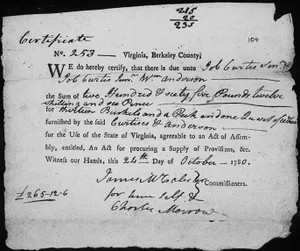 215
20
235
Certificate
104
No. 253 Virginia, Berkeley County,
WE do hereby certify, that there is due unto Job Curtis Senr &
Job Curtis Junr Wm Anderson
the Sum of two Hundred & sixty five Pounds twelve
shillings and six Pence
for thirteen Bushels and a Peck and one Quart of
furnished by the said Curtises & Anderson
for the Use of the State of Virginia, agreeable to an Act of Assem-
bly, entitled, An Act for procuring a Supply of Provisions, &c.
Witness our Hands, this 24th Day of October 1780.
James
Commissioners.
for him self &
£265-12-6
Charles Morrow